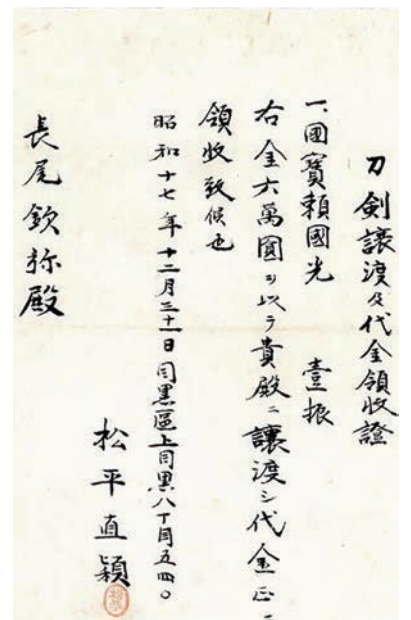 刀劍讓渡及代金領收證
一、國寶賴國光 壹振
右金六萬圓ヲ以テ貴殿ニ讓渡シ代金正ニ
領收致候也
昭和十七年十二月三十一日目黒區上目黒八丁目五四〇
松平直頴
長尾欽弥殿